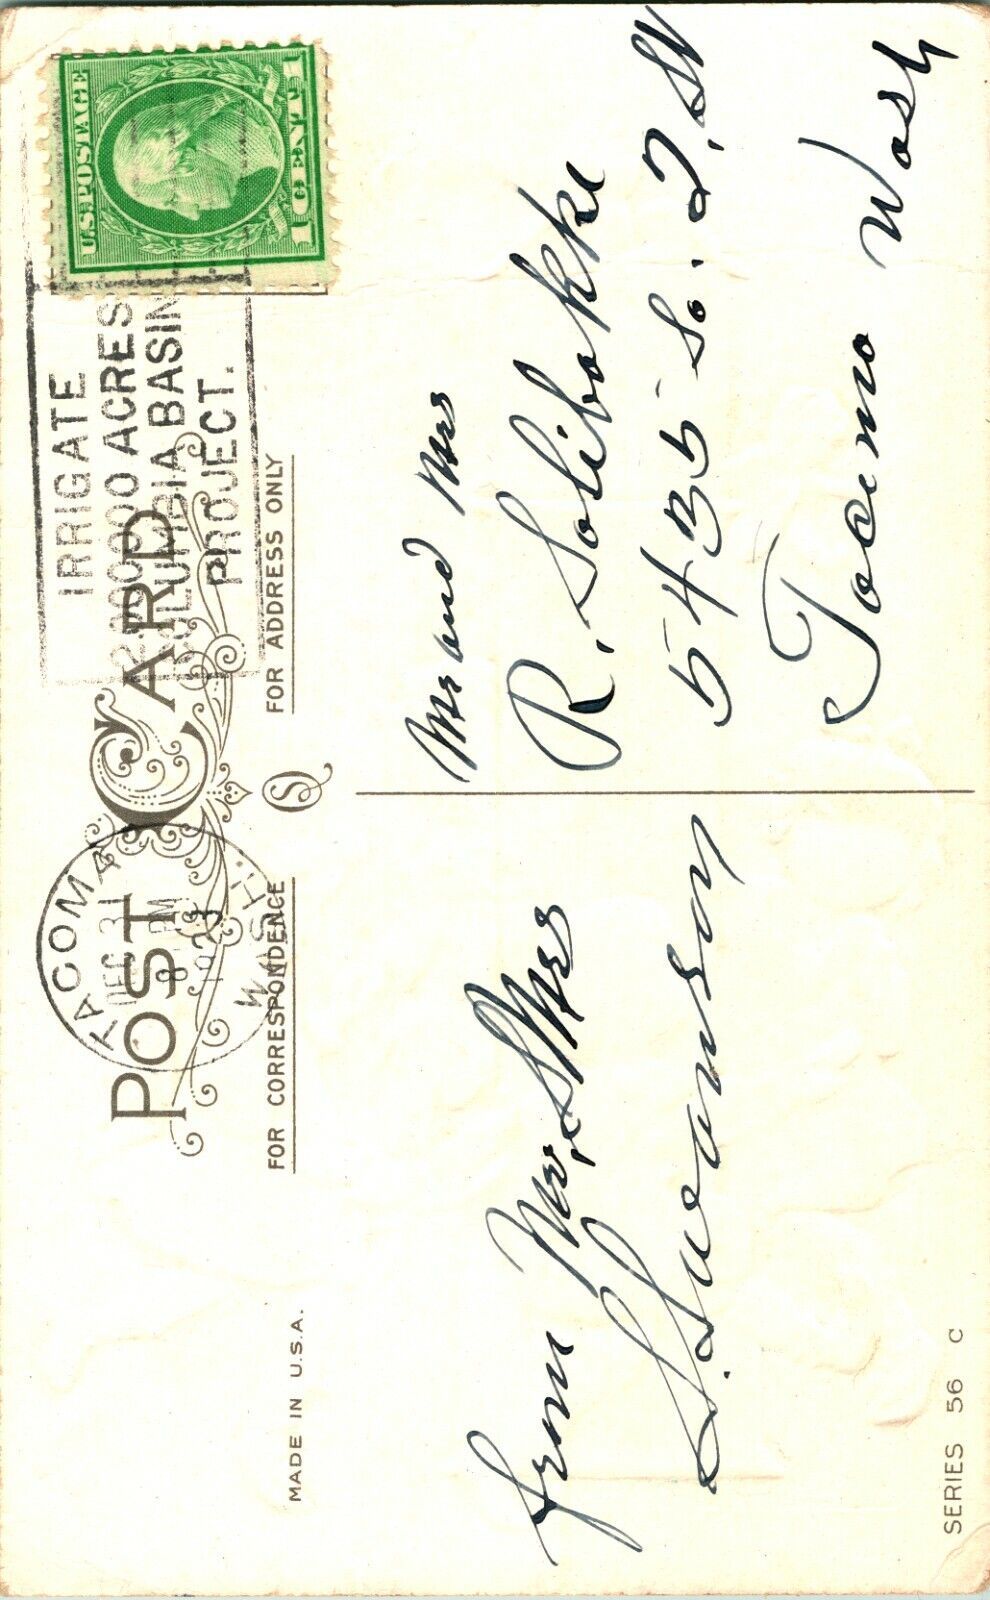 U.S. POSTAGE
1 CENT 1
IRRIGATE
2,000,000 ACRES
COLUMBIA BASIN
PROJECT.
TACOMA
WASH.
DEC 31
8 PM
POST CARD
FOR CORRESPONDENCE
FOR ADDRESS ONLY
MADE IN U.S.A.
from Mr. & Mrs
S. Swanson
Mr and Mrs
R. Solibakke
5435 So. I, St
Tacoma Wash
SERIES 56 C